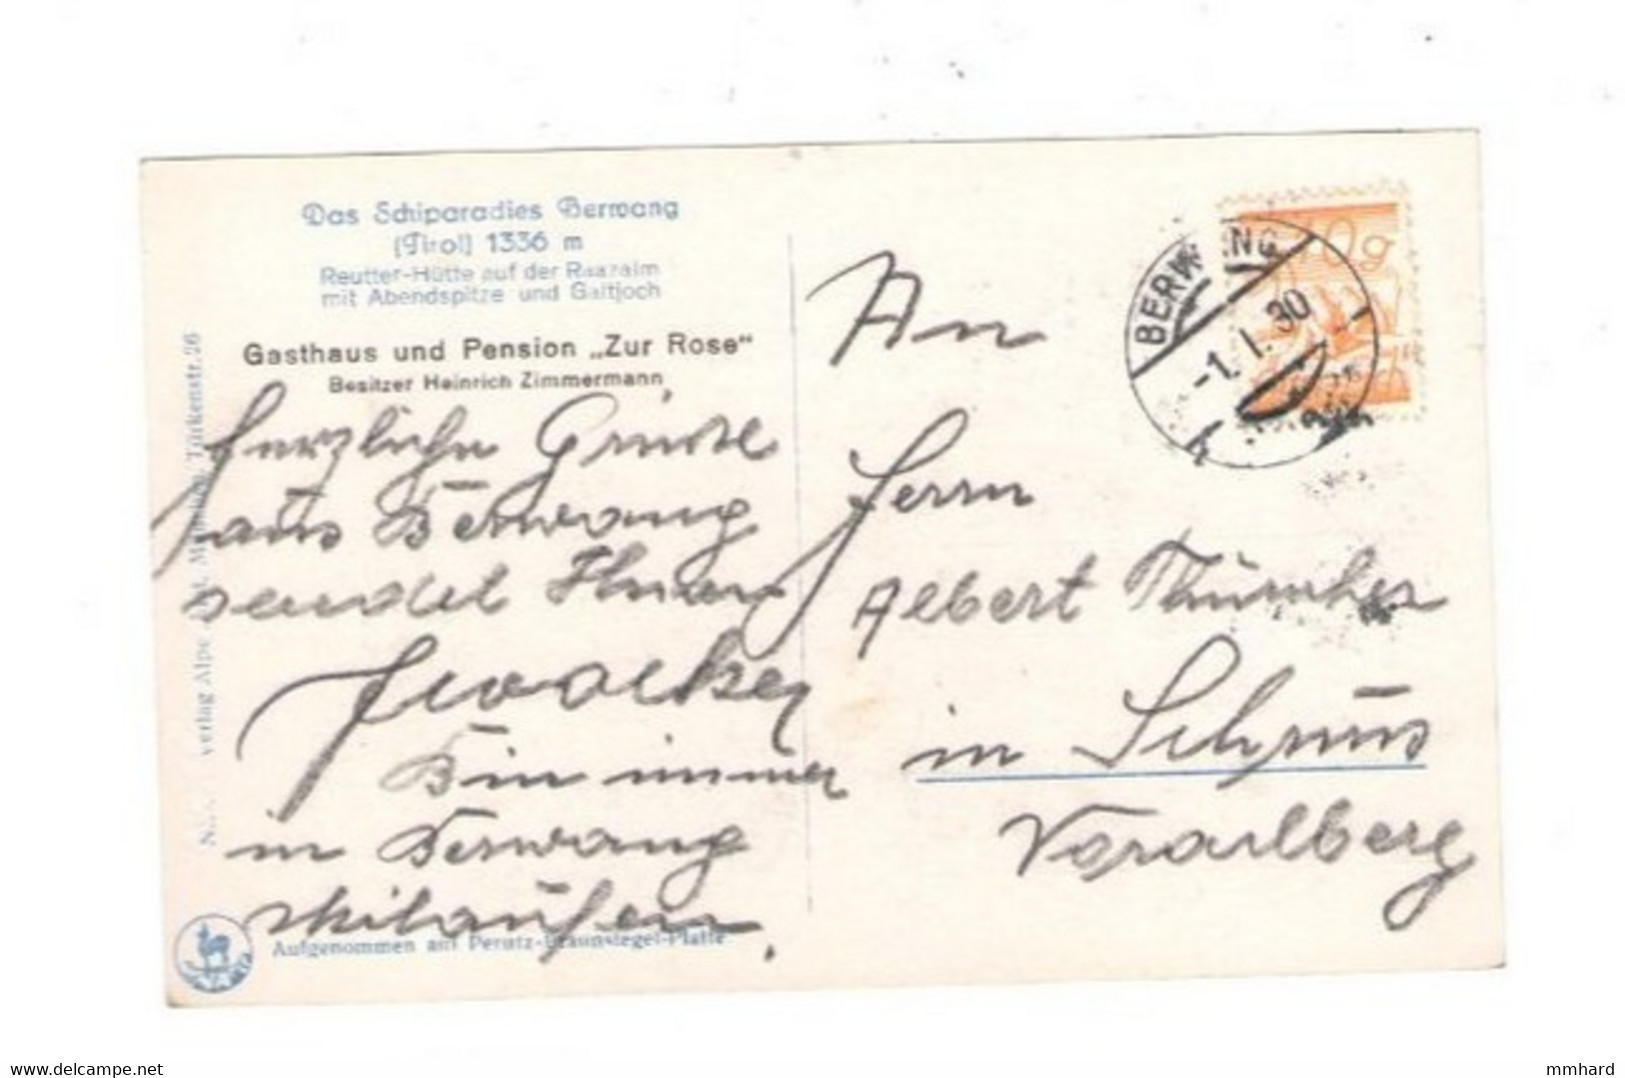 Das Schiparadies Berwang
(Tirol) 1336 m
Reutter-Hütte auf der Raazalm
mit Abendspitze und Galtjoch
Gasthaus und Pension „Zur Rose“
Besitzer Heinrich Zimmermann
herzliche Grüsse
aus Berwang
sendet Ihnen
Bin immer
in Berwang
skilaufen.
Aufgenommen auf Perutz-Braunsiegel-Platte
verlag Alpe Türkenstr. 26
BERWANG
-1. I. 30
10g
An
Herrn
Albert
in Schruns
Vorarlberg
mmhard
delcampe.net